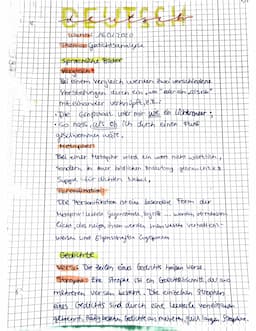 DEUTSCH
deutsch
Thema: Gedichtanalyse
Sprachliche Bilder
Vergleich
Bei einem Vergleich werden zwei verschiedene
Vorstellungen durch ein „wie" oder ein „als ob"
miteinander verknüpft, z.B.:
• Die Großstadt war mir wie ein
• So nass, als ob ich durch einen Fluss
geschwommen wäre.
Metapher
Bei einer Metapher wird ein Wort nicht wörtlich,
sondern in einer bildlichen Bedeutung gebraucht z.B.
Suppe für dichten Nebel.
Personifikation
Die Personifikation ist eine besondere Form der
Metapher: leblose Gegenstände, Begriffe werden
menschliche Verhaltens-
weisen und Eigenschaften zugesprochen.
Gedichte
Verse: Die Zeilen eines Gedichts heißen Verse.
Strophe: Eine Strophe ist ein Gedichtabschnitt, der aus
mehreren Versen besteht. Die einzelnen Strophen
eines Gedichts sind durch eine Leerzeile voneinander
getrennt. Häufig bestehen Gedichte aus mehreren, gleich langen Strophen.